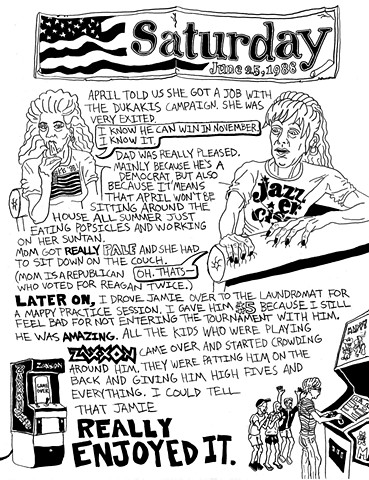 Saturday
June 25, 1988
APRIL TOLD US SHE GOT A JOB WITH
THE DUKAKIS CAMPAIGN. SHE WAS
VERY EXCITED.
I KNOW HE CAN WIN IN NOVEMBER.
I KNOW IT.
DAD WAS REALLY PLEASED.
MAINLY BECAUSE HE'S A
DEMOCRAT, BUT ALSO
BECAUSE IT MEANS
THAT APRIL WON'T BE
SITTING AROUND THE
HOUSE ALL SUMMER JUST
EATING POPSICLES AND WORKING
ON HER SUNTAN.
Jazz.
er
cise
MOM GOT REALLY PALE AND SHE HAD
TO SIT DOWN ON THE COUCH.
(MOM IS A REPUBLICAN
WHO VOTED FOR REAGAN TWICE.)
OH. THATS—
LATER ON, I DROVE JAMIE OVER TO THE LAUNDROMAT FOR
A MAPPY PRACTICE SESSION. I GAVE HIM $5 BECAUSE I STILL
FEEL BAD FOR NOT ENTERING THE TOURNAMENT WITH HIM.
HE WAS AMAZING. ALL THE KIDS WHO WERE PLAYING
ZAXXON CAME OVER AND STARTED CROWDING
AROUND HIM. THEY WERE PATTING HIM ON THE
BACK AND GIVING HIM HIGH FIVES AND
EVERYTHING. I COULD TELL
THAT JAMIE
REALLY
ENJOYED IT.
ZAXXON
GAME
OVER